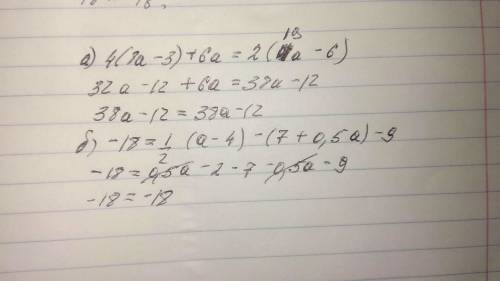 а) 4(8а-3)+6а = 2(19а-6)
32а-12+6а=38а-12
38а-12=38а-12
б) -18=1/2 (а-4)-(7+0,5а)-9
-18=0,5а-2-7-0,5а-9
-18=-18